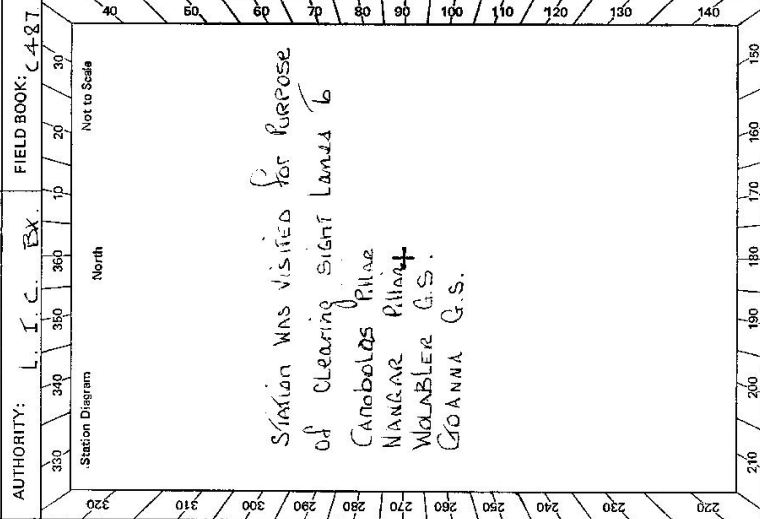 AUTHORITY: L. I. C. BX. FIELD BOOK: C487
330 340 350 360 10 20 30
Station Diagram North Not to Scale
40 50 60 70 80 90 100 110 120 130 140
150 160 170 180 190 200 210
220 230 240 250 260 270 280 290 300 310 320
STATION WAS VISITED for PURPOSE
Of Clearing SIGHT Lanes To
CANOBOLAS Pillar
NANGAR Pillar
WOLABLER G.S.
GOANNA G.S.